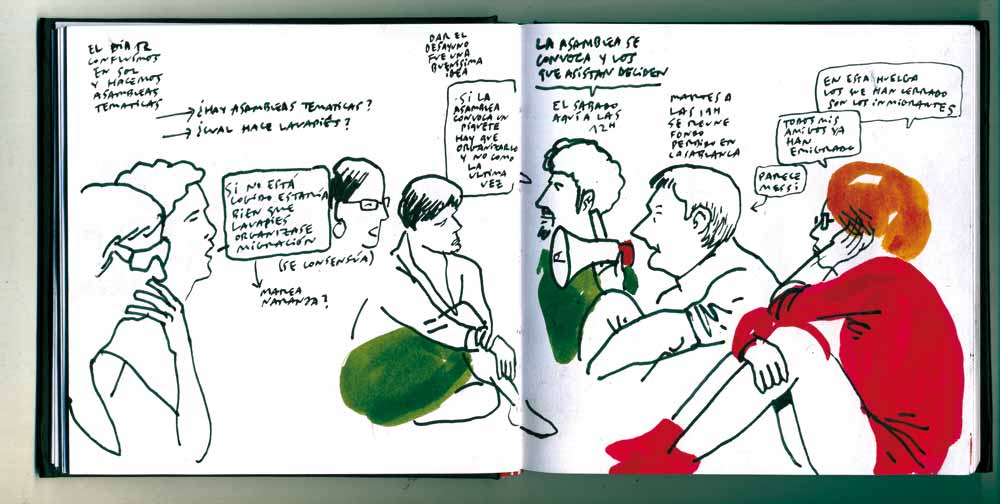 EL DÍA 12
CONFLUIMOS
EN SOL
Y HACEMOS
ASAMBLEAS
TEMATICAS
¿HAY ASAMBLEAS TEMATICAS?
¿CUAL HACE LAVAPIÉS?
SI NO ESTÁ
COGIDO ESTARÍA
BIEN QUE
LAVAPIES
ORGANIZASE
MIGRACIÓN
(SE CONSENSÚA)
MAREA
NARANJA?
DAR EL
DESAYUNO
FUE UNA
BUENÍSIMA
IDEA
SI LA
ASAMBLEA
CONVOCA UN
PIQUETE
HAY QUE
ORGANIZARLO
Y NO COMO
LA
ULTIMA
VEZ
LA ASAMBLEA SE
CONVOCA Y LOS
QUE ASISTAN DECIDEN
EL SABADO
AQUÍ A LAS
12H
MARTES A
LAS 19H
SE REUNE
FONDO
PERDIDO EN
CASABLANCA
EN ESTA HUELGA
LOS QUE HAN CERRADO
SON LOS INMIGRANTES
TODOS MIS
AMIGOS YA
HAN
EMIGRADO
PARECE
MESSI